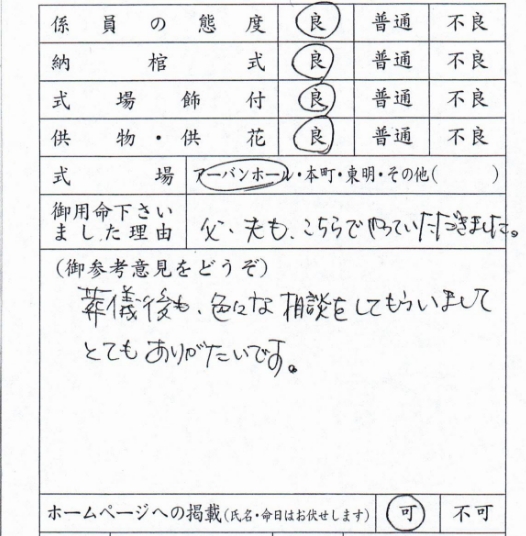 係員の態度 良 普通 不良
納棺式 良 普通 不良
式場飾付 良 普通 不良
供物・供花 良 普通 不良
式場 アーバンホール・本町・東明・その他( )
御用命下さい
ました理由 父・夫も、こちらでやっていただきました。
(御参考意見をどうぞ)
葬儀後も、色々な相談をしてもらいまして
とてもありがたいです。
ホームページへの掲載(氏名・命日はお伏せします) 可 不可